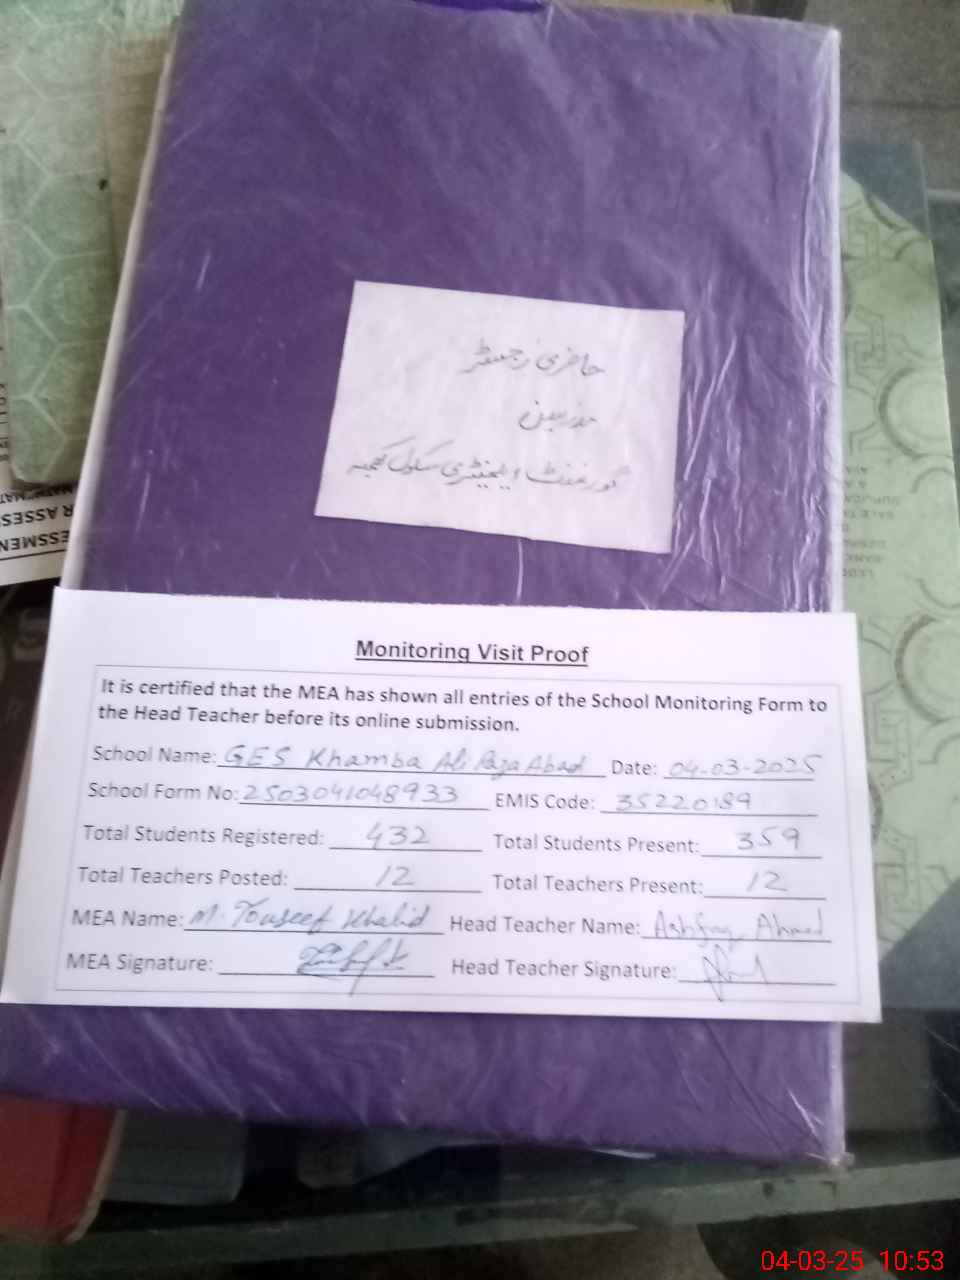 حاضری رجسٹر
مدرسین
گورنمنٹ ایلیمنٹری سکول کھمبہ
Monitoring Visit Proof
It is certified that the MEA has shown all entries of the School Monitoring Form to
the Head Teacher before its online submission.
School Name: GES Khamba Ali Raza Abad Date: 04-03-2025
School Form No: 2503041048933 EMIS Code: 35220189
Total Students Registered: 432 Total Students Present: 359
Total Teachers Posted: 12 Total Teachers Present: 12
MEA Name: M. Touseef Khalid Head Teacher Name: Ashfaq Ahmed
MEA Signature: Head Teacher Signature:
04-03-25 10:53